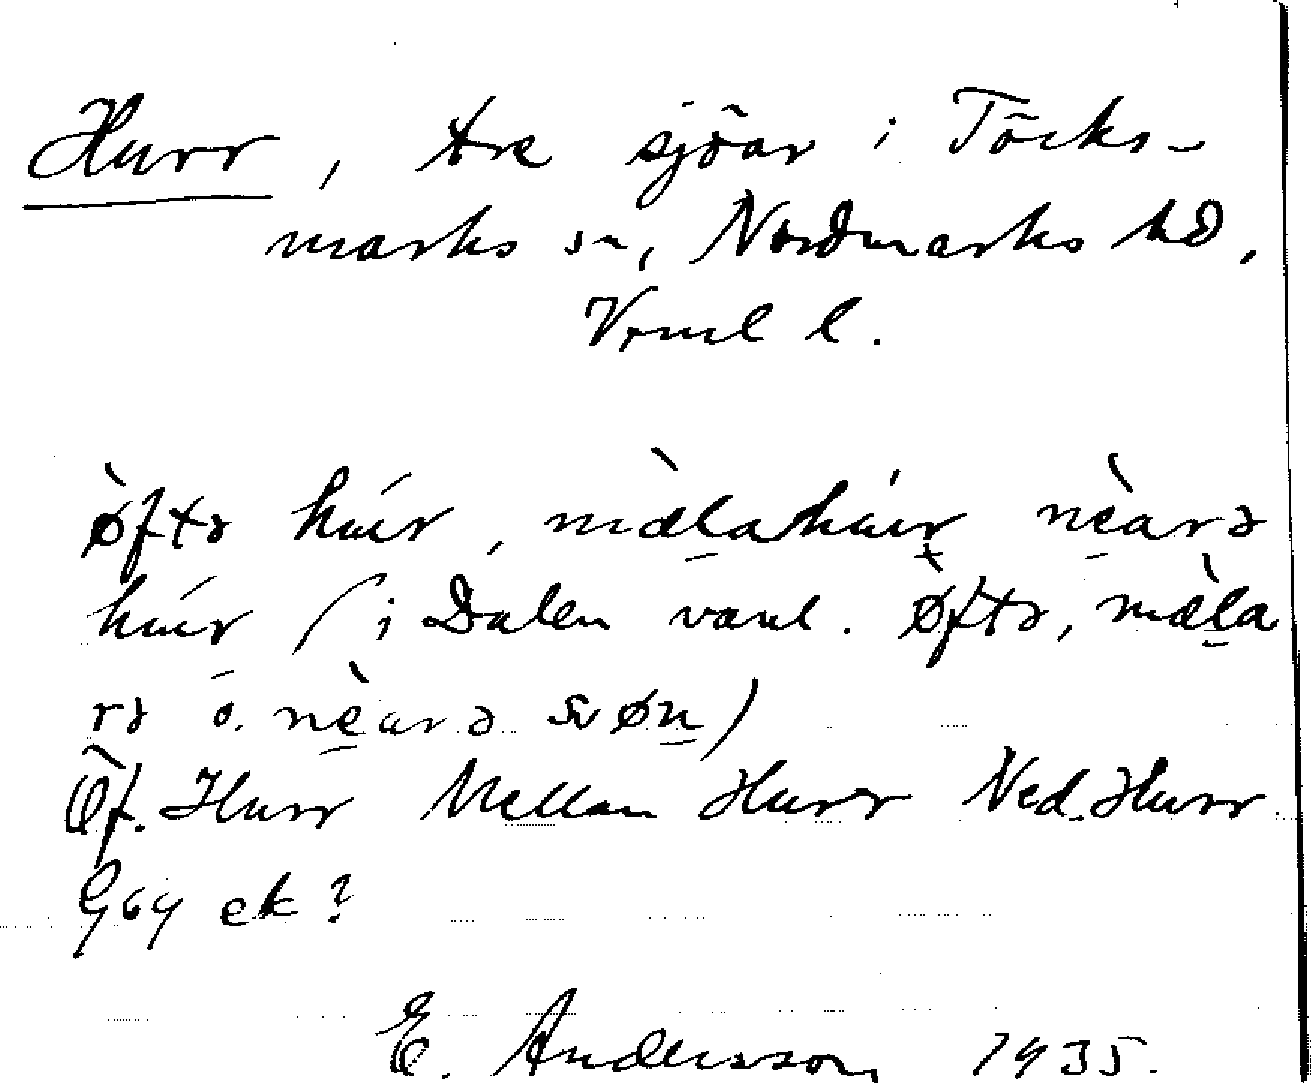 Hurr, tre sjöar i Töcks-
marks sn, Nordmarks hd,
Vrml l.
ø̀ftə húr, mæ̀lahúr nèarə
húr (i Dalen vanl. ø̀ftə, mæ̀la
rə o. nèarə svøn)
Öf. Hurr Mellan Hurr Ned. Hurr
ek?
E. Andersson 1935.